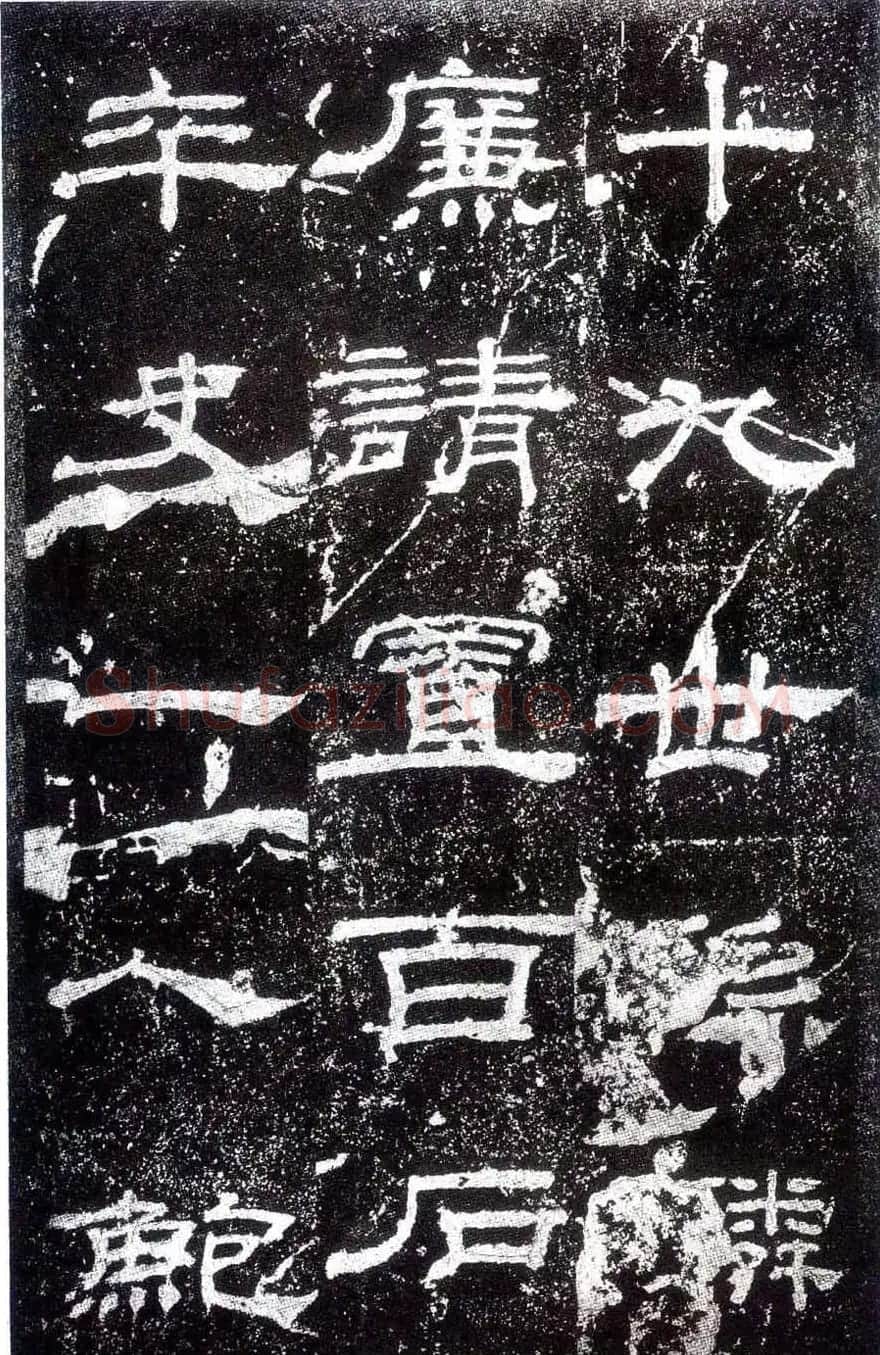 十九世孫麟
廉請置百石
卒史一人鮑
Shufaziliao.COM